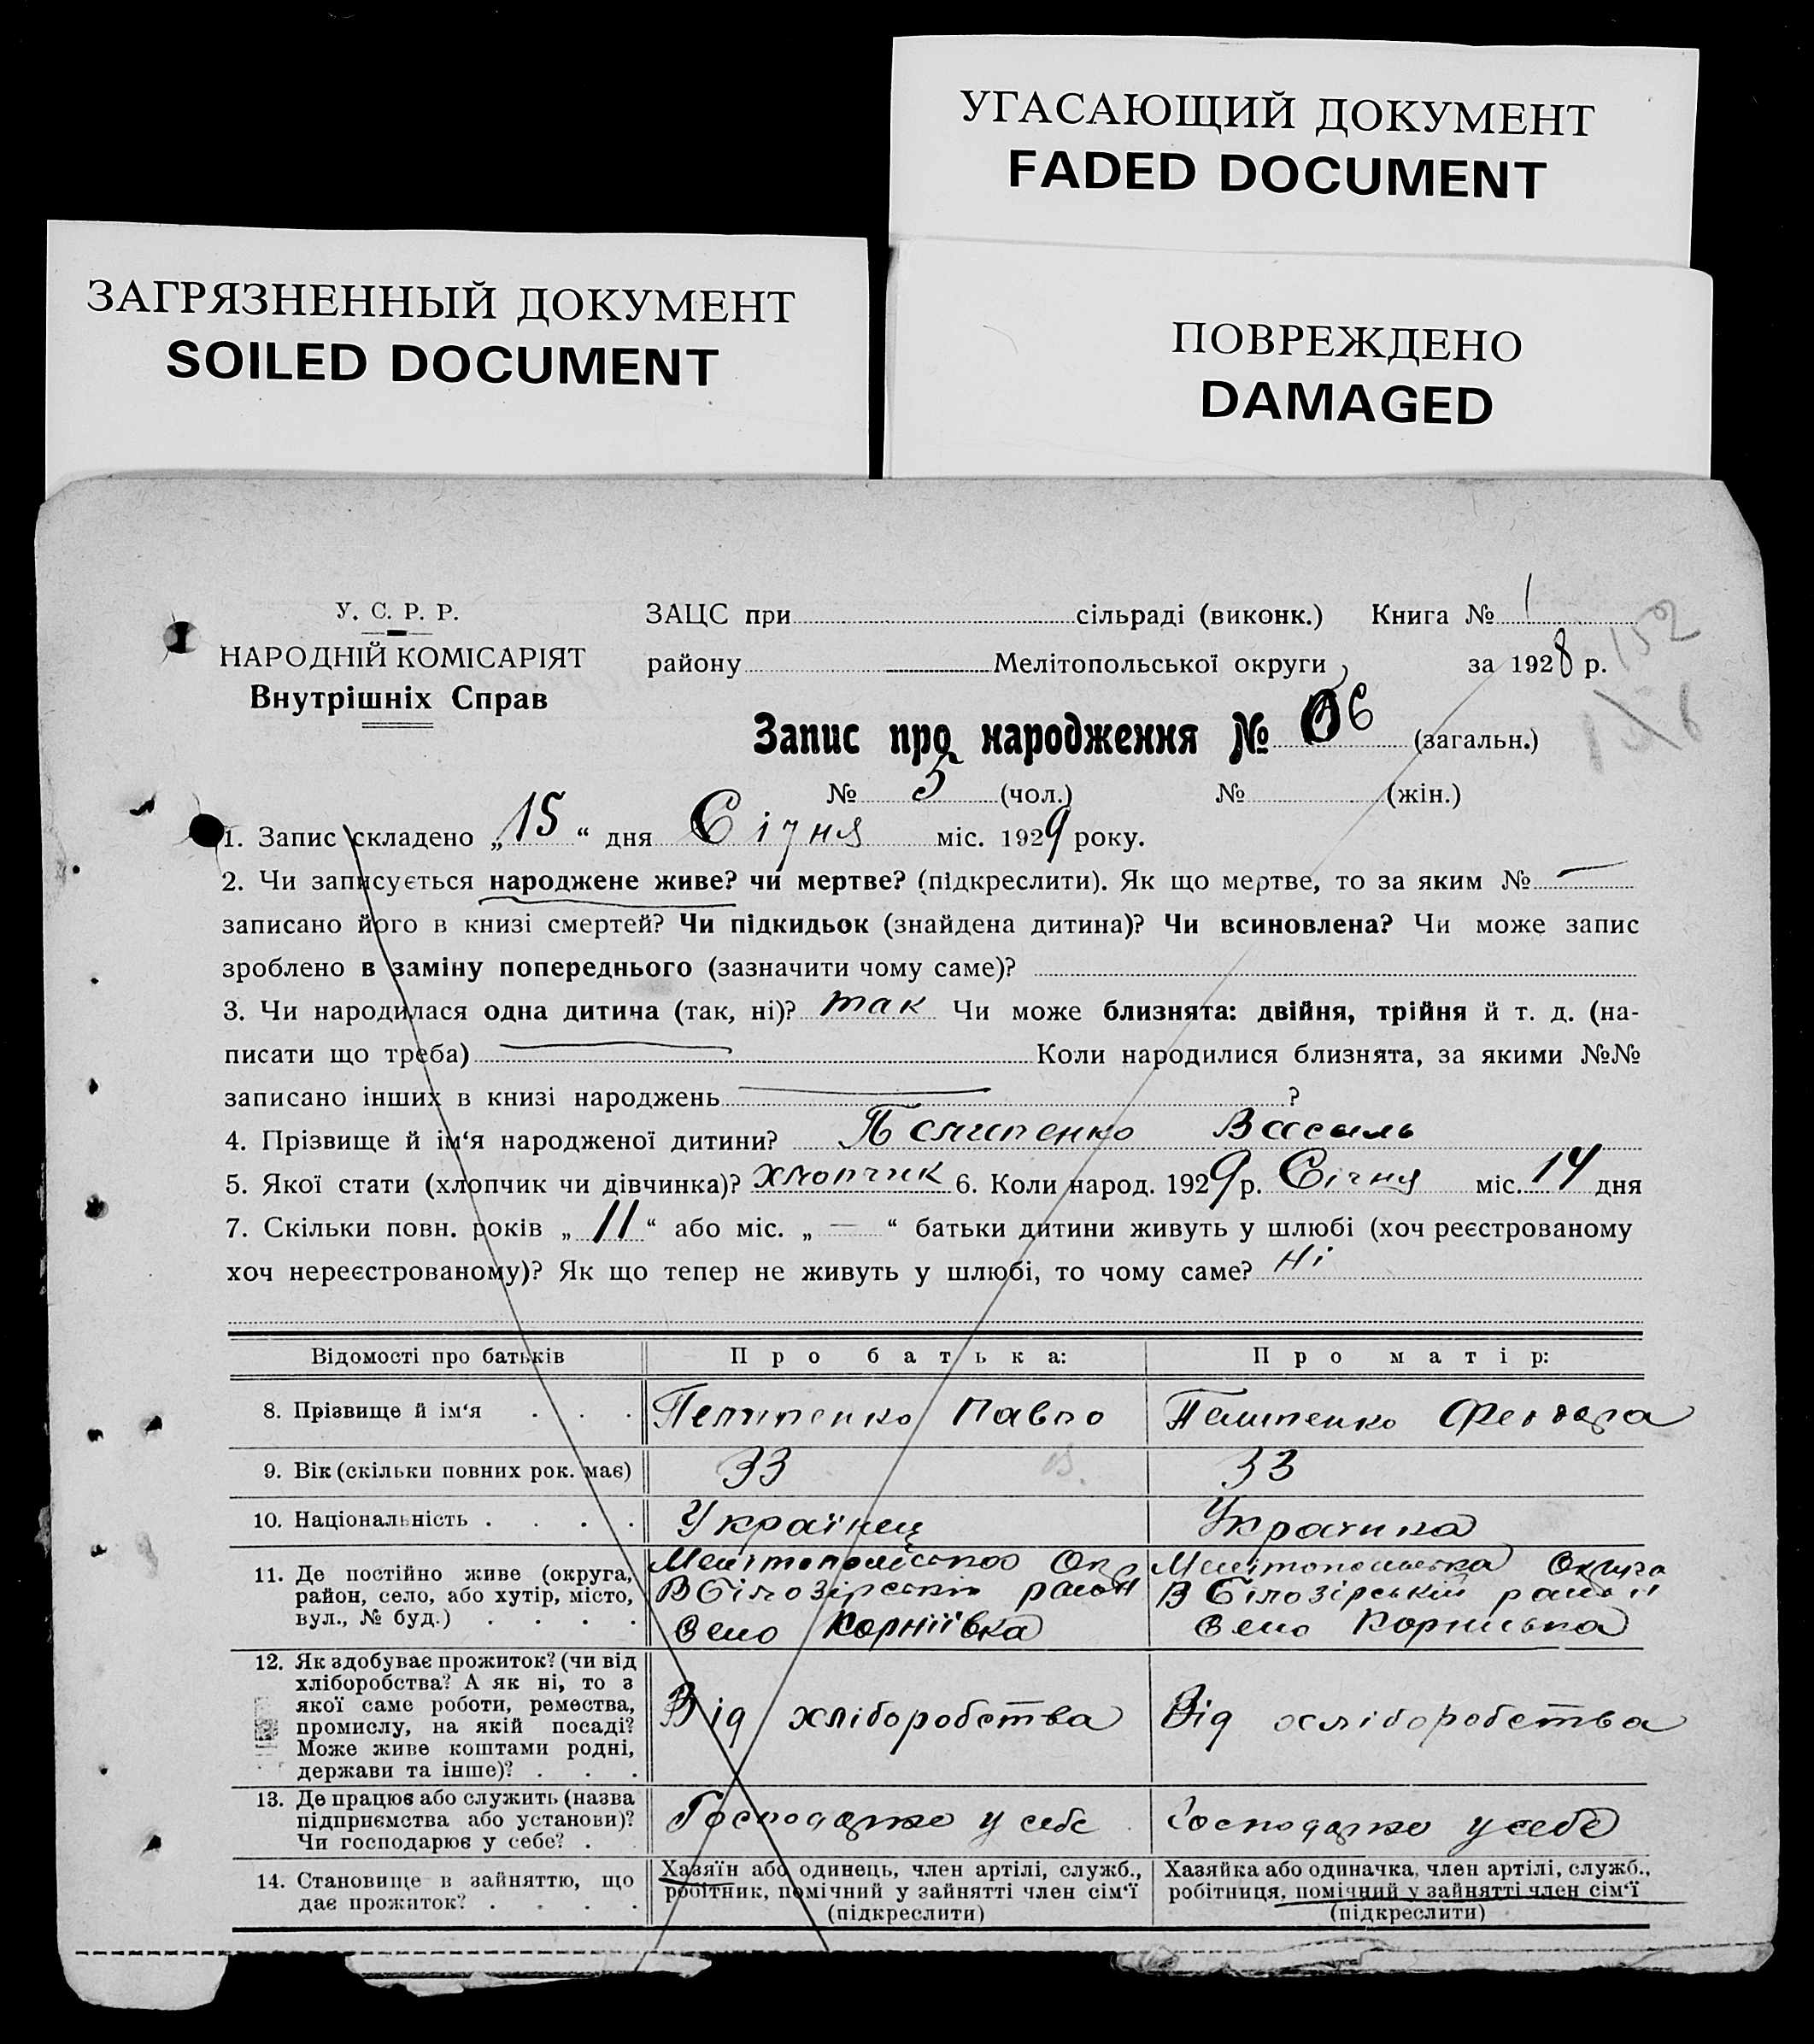 УГАСАЮЩИЙ ДОКУМЕНТ
FADED DOCUMENT
ЗАГРЯЗНЕННЫЙ ДОКУМЕНТ
SOILED DOCUMENT
ПОВРЕЖДЕНО
DAMAGED
У. С. Р. Р.
НАРОДНІЙ КОМІСАРІЯТ
Внутрішніх Справ
ЗАЦС при сільраді (виконк.) Книга № 1
району Мелітопольської округи за 1928 р.
152
Запис про народження № 6 (загальн.)
№ 5 (чол.) № (жін.)
1. Запис складено „15“ дня Січня міс. 1929 року.
2. Чи записується народжене живе? чи мертве? (підкреслити). Як що мертве, то за яким № —
записано його в книзі смертей? Чи підкидьок (знайдена дитина)? Чи всиновлена? Чи може запис
зроблено в заміну попереднього (зазначити чому саме)?
3. Чи народилася одна дитина (так, ні)? так Чи може близнята: двійня, трійня й т. д. (на-
писати що треба) — Коли народилися близнята, за якими №№
записано інших в книзі народжень — ?
4. Прізвище й ім‘я народженої дитини? Пелипенко Василь
5. Якої стати (хлопчик чи дівчинка)? хлопчик 6. Коли народ. 1929 р. Січня міс. 14 дня
7. Скільки повн. років „11“ або міс. „—“ батьки дитини живуть у шлюбі (хоч реєстрованому
хоч нереєстрованому)? Як що тепер не живуть у шлюбі, то чому саме? ні
Відомості про батьків Про батька: Про матір:
8. Прізвище й ім‘я . . . Пелипенко Павло Пелипенко Феодора
9. Вік (скільки повних рок. має) 33 33
10. Національність . . . . Українець Українка
11. Де постійно живе (округа, Мелітопольська Окр Мелітопольська Округа
район, село, або хутір, місто, В Білозірській район В Білозірській район
вул., № буд.) . . . . Село Корніївка Село Корніївка
12. Як здобуває прожиток? (чи від
хліборобства? А як ні, то з
якої саме роботи, ремества, Від хліборобства Від хліборобства
промислу, на якій посаді?
Може живе коштами родні,
держави та інше)? . . .
13. Де працює або служить (назва
підприємства або установи)? Господарює у себе Господарює у себе
Чи господарює у себе? .
14. Становище в зайняттю, що
дає прожиток? . . . .
Хазяїн або одинець, член артілі, служб.,
робітник, помічний у зайнятті член сім‘ї
(підкреслити)
Хазяйка або одиначка, член артілі, служб.,
робітниця, помічний у зайнятті член сім‘ї
(підкреслити)